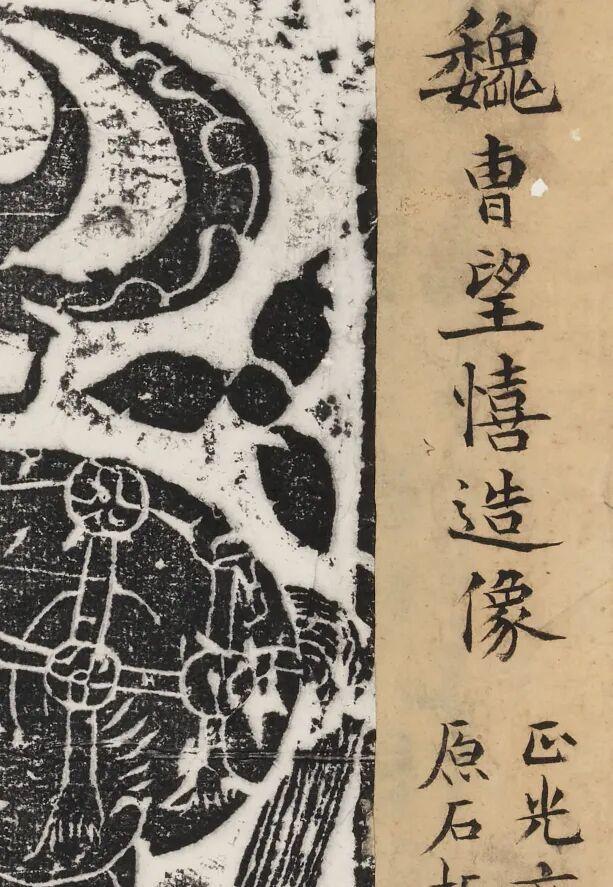 魏曹望憘造像
正光六
原石拓